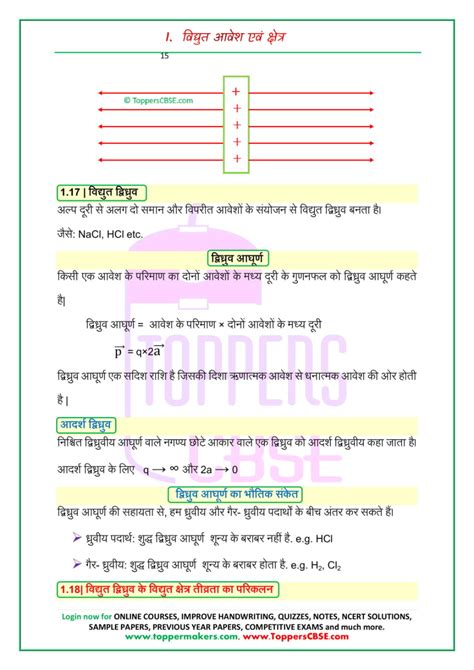 1. विद्युत आवेश एवं क्षेत्र
15
+
© ToppersCBSE.com
+
+
+
+
1.17| विद्युत द्विध्रुव
अल्प दूरी से अलग दो समान और विपरीत आवेशों के संयोजन से विद्युत द्विध्रुव बनता है।
जैसे: NaCl, HCl etc.
द्विध्रुव आघूर्ण
किसी एक आवेश के परिमाण का दोनों आवेशों के मध्य दूरी के गुणनफल को द्विध्रुव आघूर्ण कहते
है|
द्विध्रुव आघूर्ण = आवेश के परिमाण × दोनों आवेशों के मध्य दूरी
p⃗ = q×2a⃗
द्विध्रुव आघूर्ण एक सदिश राशि है जिसकी दिशा ऋणात्मक आवेश से धनात्मक आवेश की ओर होती
है |
आदर्श द्विध्रुव
निश्चित द्विध्रुवीय आघूर्ण वाले नगण्य छोटे आकार वाले एक द्विध्रुव को आदर्श द्विध्रुवीय कहा जाता है।
आदर्श द्विध्रुव के लिए q → ∞ और 2a → 0
द्विध्रुव आघूर्ण का भौतिक संकेत
द्विध्रुव आघूर्ण की सहायता से, हम ध्रुवीय और गैर- ध्रुवीय पदार्थों के बीच अंतर कर सकते हैं।
➢ ध्रुवीय पदार्थ: शुद्ध द्विध्रुव आघूर्ण शून्य के बराबर नहीं है. e.g. HCl
➢ गैर- ध्रुवीय: शुद्ध द्विध्रुव आघूर्ण शून्य के बराबर होता है. e.g. H₂, Cl₂
1.18| विद्युत द्विध्रुव के विद्युत क्षेत्र तीव्रता का परिकलन
Login now for ONLINE COURSES, IMPROVE HANDWRITING, QUIZZES, NOTES, NCERT SOLUTIONS,
SAMPLE PAPERS, PREVIOUS YEAR PAPERS, COMPETITIVE EXAMS and much more.
www.toppermakers.com. www.ToppersCBSE.com
TOPPERS
CBSE